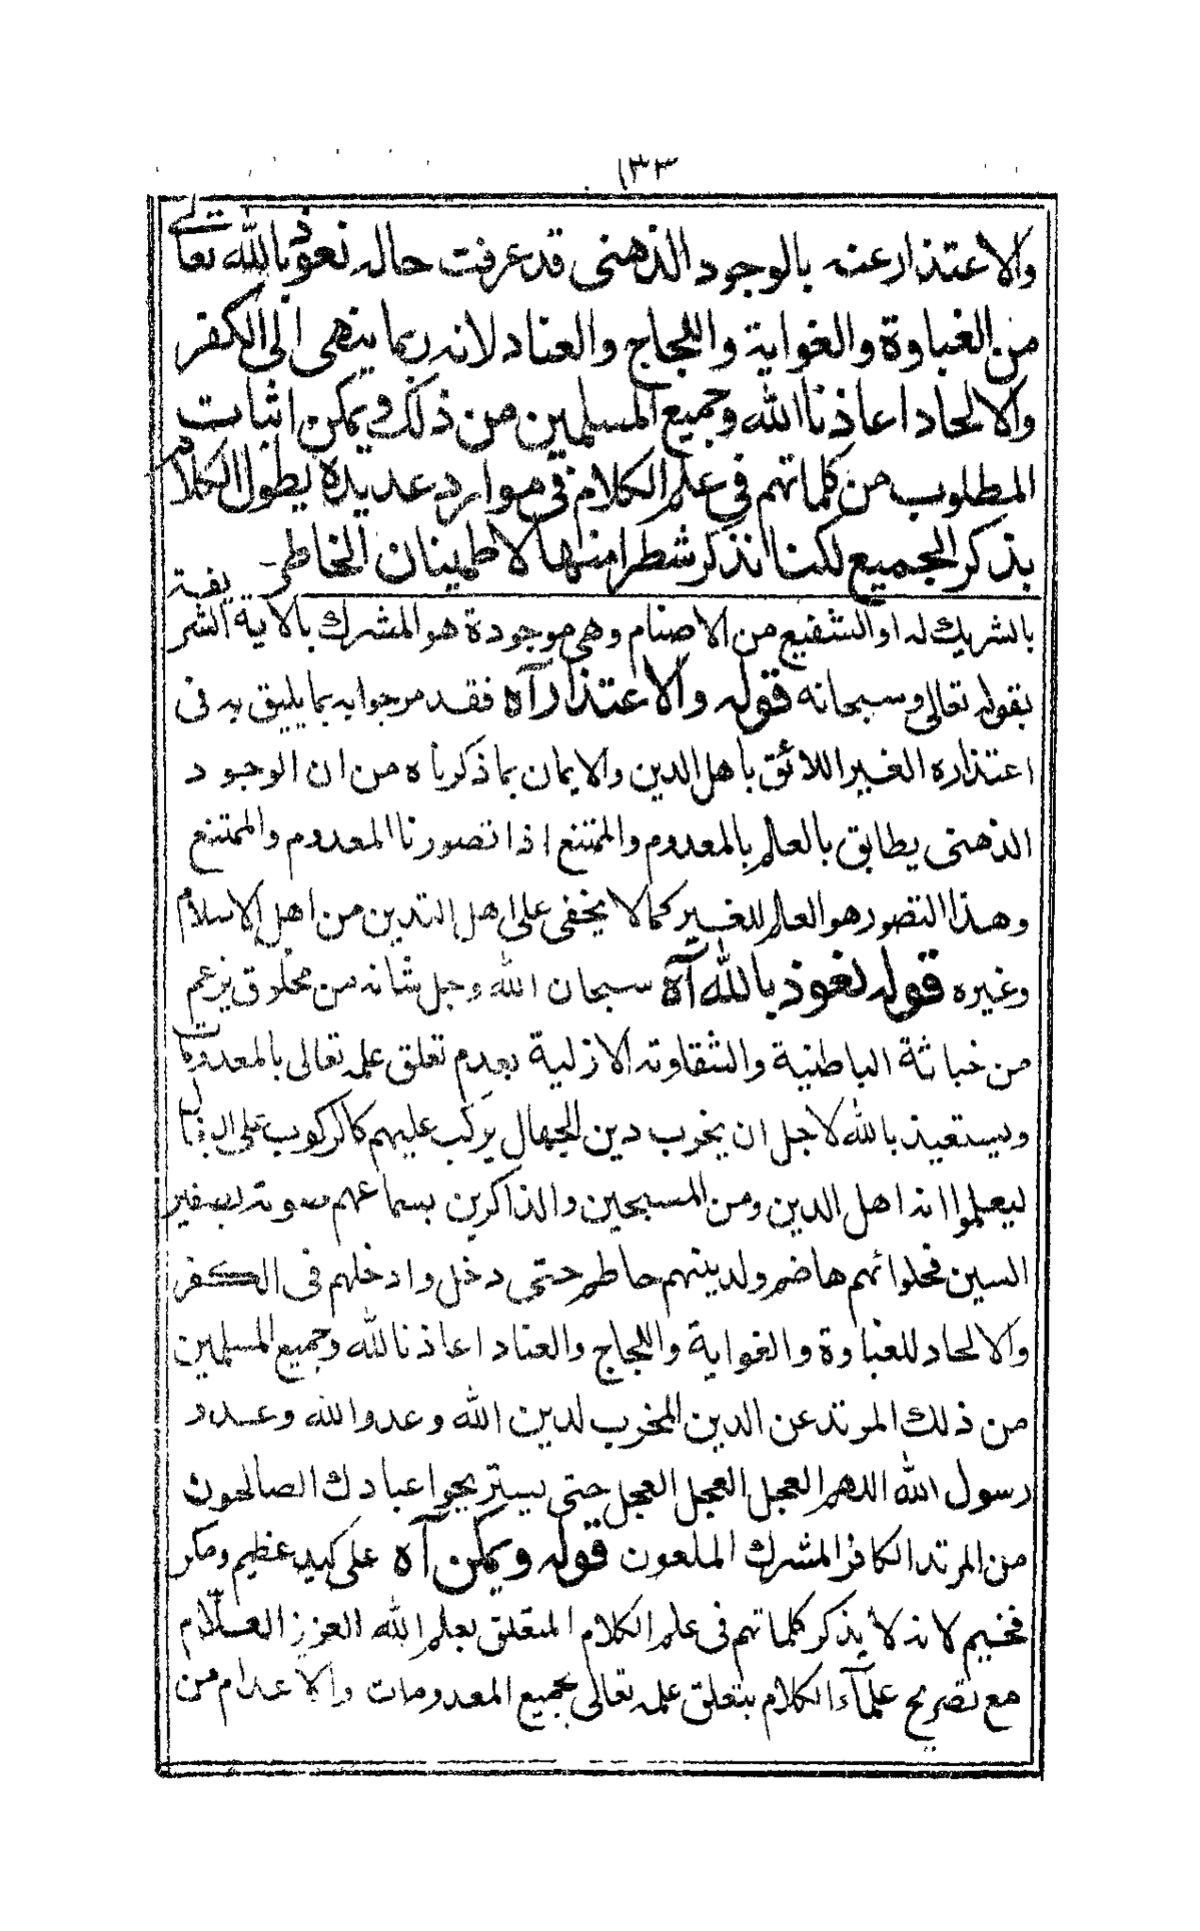 ١٣٣
والاعتذار عنه بالوجود الذهنى قد عرفت حاله نعوذ بالله تعالى
من الغباوة والغواية واللجاج والعناد لانه ربما ينهى الى الكفر
والالحاد اعاذنا الله وجميع المسلمين من ذلك ويمكن اثبات
المطلوب من كلماتهم في علم الكلام في موارد عديدة يطول الكلام
بذكر الجميع لكنا نذكر شطرا منها لاطمينان الخاطر
بالشريك له او الشفيع من الاصنام وهى موجودة هو المشرك بالاية الشريفة
بقوله تعالى وسبحانه قوله والاعتذار آه فقد مر جوابه بما يليق به فى
اعتذاره الغير اللائق باهل الدين والايمان بما ذكرناه من ان الوجود
الذهنى يطابق بالعالم بالمعدوم والممتنع اذا تصورنا المعدوم والممتنع
وهذا التصور هو العالم للغير كما لا يخفى على اهل التدين من اهل الاسلام
وغيره قوله نعوذ بالله آه سبحان الله وجل شانه من مخلوق يزعم
من خباثة الباطنية والشقاوته الازلية بعدم تعلق علمه تعالى بالمعدومات
ويستعيذ بالله لاجل ان يخرب دين الجهال يركب عليهم كالركوب على
ليعلموا انه اهل الدين ومن المسبحين والذاكرين بسماعهم صوته بصفير
السين فحلوائهم هاضم ولدينهم حاطم حتى دخل وادخلهم فى الكفر
والالحاد للغباوة والغواية واللجاج والعناد اعاذنا لله وجميع المسلمين
من ذلك المرتد عن الدين المخرب لدين الله وعدو الله وعدو
رسول الله اللهم العجل العجل العجل حتى يستريحوا عبادك الصالحون
من المرتد الكافر المشرك الملعون قوله ويمكن آه على كيد عظيم ومكر
فخيم لانه لا يذكر كلماتهم فى علم الكلام المتعلق بعلم الله العزيز العلام
مع تصريح علمآء الكلام بتعلق علمه تعالى بجميع المعدومات والاعدام من